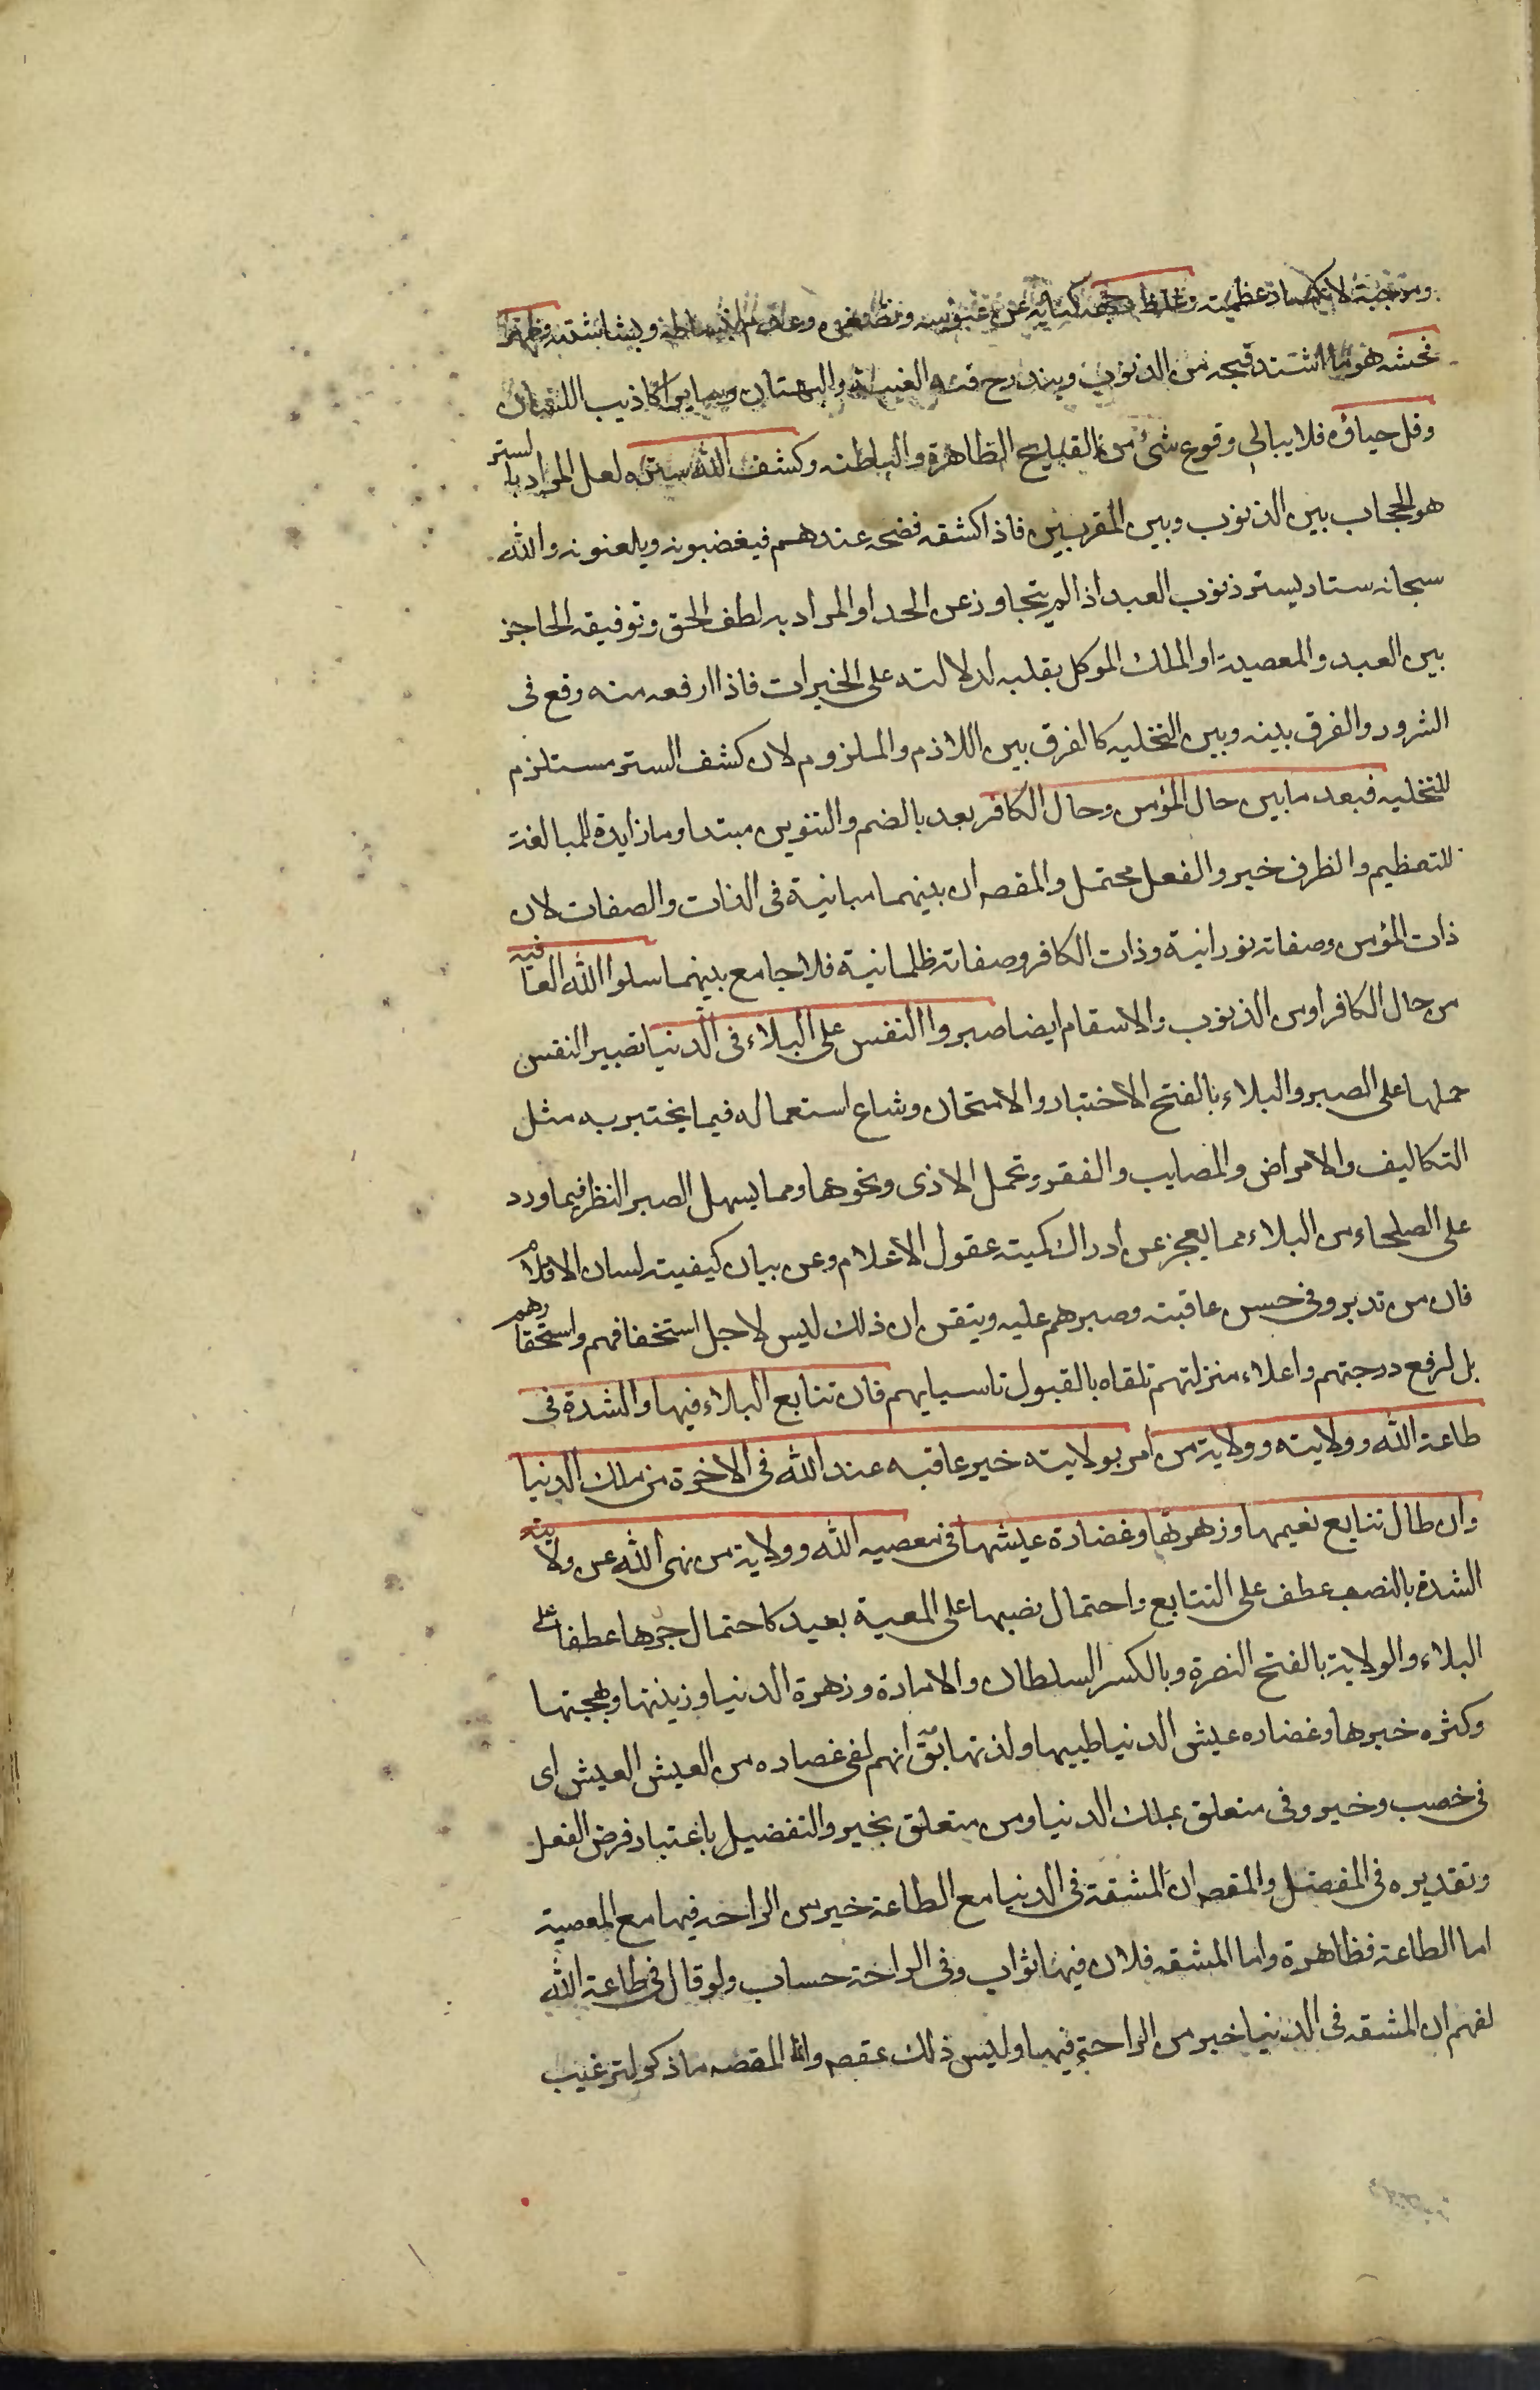 وموجبة لانكسار عظمته وغلظ وجهه كناية عن عبوسه وعدم انبساطه وبشاشته وظهر
فحشه هو ما اشتد قبحه من الذنوب ويندرج فيه الغيبة والبهتان وساير اكاذيب اللسان
وقل حياؤه فلا يبالى وقوع شئ من القبايح الظاهرة والباطنه وكشف الله ستره لعل المراد بالستر
هو الحجاب بين الذنوب وبين المقربين فاذا كشفه فضحه عندهم فيغضبونه ويلعنونه والله
سبحانه ستار يستر ذنوب العبد اذا لم يتجاوز عن الحد او المراد به لطف الحق وتوفيقه الحاجز
بين العبد والمعصية او الملك الموكل بقلبه لدلالته على الخيرات فاذا ارفعه منه وقع فى
الشرور والفرق بينه وبين التخليه كالفرق بين اللازم والملزوم لان كشف الستر مستلزم
للتخليه فبعد ما بين حال المؤمن وحال الكافر بعد بالضم والتنوين مبتدا وما زايدة للمبالغة
للتعظيم والظرف خبر والفعل محتمل والمقصه ان بينهما مباينة فى الذات والصفات لان
ذات المؤمن وصفاته نورانية وذات الكافر وصفاته ظلمانية فلا جامع بينهما سلوا الله العافيه
من حال الكافر او من الذنوب والاسقام ايضا صبروا النفس على البلاء فى الدنيا تصبير النفس
حملها على الصبر والبلاء بالفتح الاختبار والامتحان وشاع استعماله فيما يختبر به مثل
التكاليف والامراض والمصايب والفقر وتحمل الاذى ونحوها ومما يسهل الصبر النظر فيما ورد
على الصلحاء من البلاء مما يعجز عن ادراك كميته عقول الاعلام وعن بيان كيفيته لسان الاقلام
فان من تدبر وفى حسن عاقبته وصبرهم عليه ويتقن ان ذلك ليس لاجل استخفافهم واستحقارهم
بل لرفع درجتهم واعلاء منزلتهم تلقاه بالقبول تاسيا بهم فان تتابع البلاء فيها والشدة فى
طاعة الله وولايته وولاية من امر بولايته خير عاقبه عند الله فى الاخرة من ملك الدنيا
وان طال تتايع نعيمها وزهرتها وغضارة عيشها فى معصيه الله وولاية من نهى الله عن ولايته
الشدة بالنصب عطف على التتابع واحتمال نصبها على المعية بعيد كاحتمال جرها عطفا على
البلاء والولاية بالفتح النصرة وبالكسر السلطان والامارة وزهرة الدنيا وزينتها وبهجتها
وكثره خيرها وغضاره عيش الدنيا طيبها ولذتها يق انهم لفى غضاره من العيش العيش اى
فى خصب وخير وفى متعلق بملك الدنيا ومن متعلق بخير والتفضيل باعتبار فرض الفعل
وتقديره فى المفضل والمقصه ان المشقة فى الدنيا مع الطاعة خير من الراحه فيها مع المعصية
اما الطاعة فظاهرة واما المشقه فلان فيها ثواب وفى الراحة حساب ولو قال فى طاعة الله
لفهم ان المشقه فى الدنيا خير من الراحة فيها وليس ذلك عقصه وانما المقصه ما ذكر لترغيب